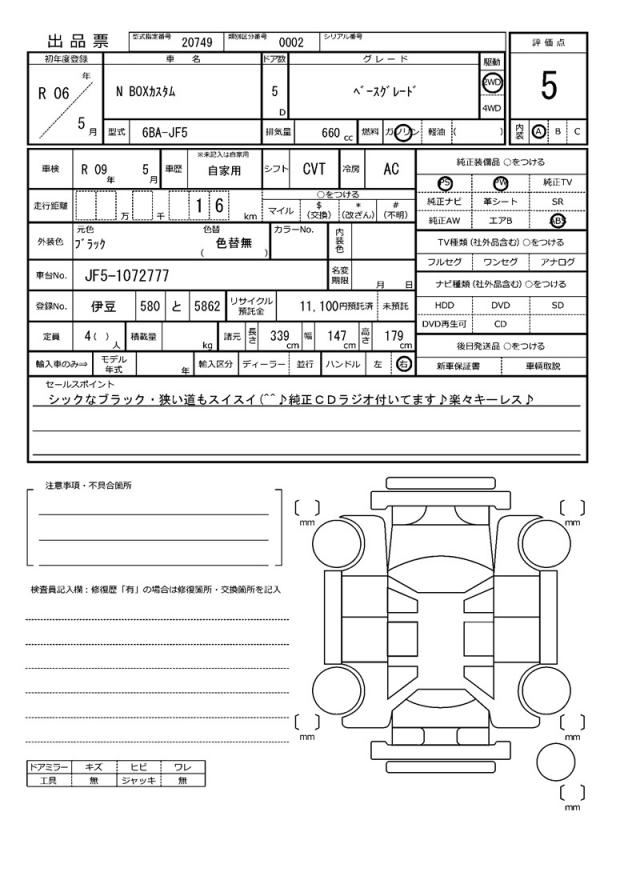 出品票 型式指定番号 20749 類別区分番号 0002 シリアル番号
評価点
初年度登録 車名 ドア数 グレード 駆動
R 06 年 N BOXカスタム 5 D ベースグレード 2WD 5
4WD
5 月 型式 6BA-JF5 排気量 660 cc 燃料 ガソリン 軽油 ( ) 内装 A B C
車検 R 09 年 5 月 車歴 ※未記入は自家用 自家用 シフト CVT 冷房 AC 純正装備品 ○をつける
PS PW 純正TV
走行距離 万 千 1 6 km ○をつける 純正ナビ 革シート SR
マイル $(交換) *(改ざん) #(不明) 純正AW エアB ABS
外装色 元色 ブラック 色替 色替無 ( ) カラーNo. 内装色 TV種類 (社外品含む) ○をつける
フルセグ ワンセグ アナログ
車台No. JF5-1072777 名変期限 月 日 ナビ種類 (社外品含む) ○をつける
登録No. 伊豆 580 と 5862 リサイクル預託金 11,100円預託済 未預託 HDD DVD SD
DVD再生可 CD
定員 4( ) 人 積載量 kg 諸元 長さ 339 cm 幅 147 cm 高さ 179 cm 後日発送品 ○をつける
輸入車のみ⇒ モデル年式 年 輸入区分 ディーラー 並行 ハンドル 左 右 新車保証書 車輌取説
セールスポイント
シックなブラック・狭い道もスイスイ(^^♪純正CDラジオ付いてます♪楽々キーレス♪
注意事項・不具合箇所
mm mm
検査員記入欄：修復歴「有」の場合は修復箇所・交換箇所を記入
mm mm
ドアミラー キズ ヒビ ワレ
工具 無 ジャッキ 無
mm